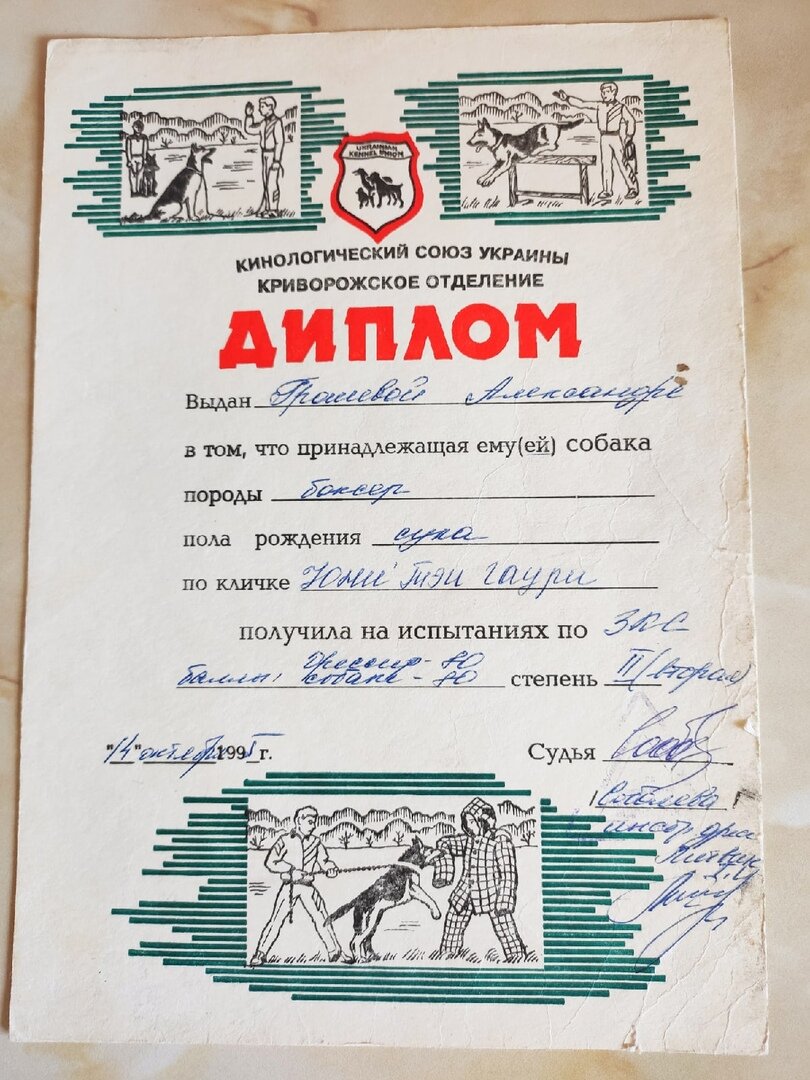 UKRAINIAN
KENNEL UNION
КИНОЛОГИЧЕСКИЙ СОЮЗ УКРАИНЫ
КРИВОРОЖСКОЕ ОТДЕЛЕНИЕ
ДИПЛОМ
Выдан Грошевой Александре
в том, что принадлежащая ему(ей) собака
породы боксер
пола рождения сука
по кличке Юни Тэи Гаури
получила на испытаниях по ЗКС
баллы: дрессир - 80
собаке - 80 степень II (вторая)
"14" октября 1995 г. Судья
Соболева